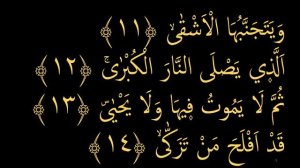 وَيَتَجَنَّبُهَا الْاَشْقٰىۙ ﴿١١﴾
اَلَّذ۪ي يَصْلَى النَّارَ الْكُبْرٰىۚ ﴿١٢﴾
ثُمَّ لَا يَمُوتُ ف۪يهَا وَلَا يَحْيٰىۜ ﴿١٣﴾
قَدْ اَفْلَحَ مَنْ تَزَكّٰىۙ ﴿١٤﴾